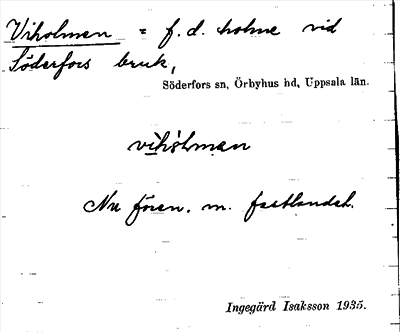 Viholmen = f. d. holme vid
Söderfors bruk,
Söderfors sn, Örbyhus hd, Uppsala län.
Nu fören. m. fastlandet.
Ingegärd Isaksson 1935.